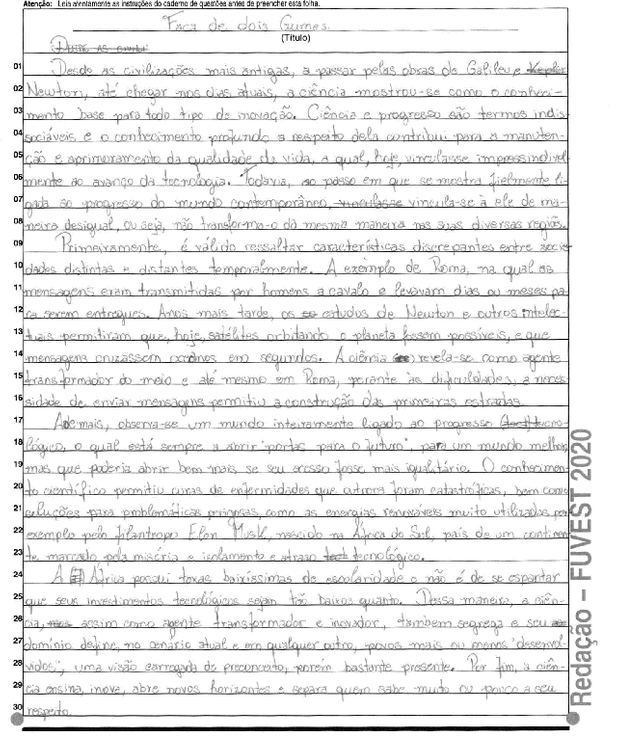 Atenção: Leia atentamente as instruções do caderno de questões antes de preencher esta folha.
Faca de dois Gumes.
(Título)
01 Desde as civilizações mais antigas, a passar pelas obras de Galileu e
02 Newton, até chegar nos dias atuais, a ciência mostrou-se como o conheci-
03 mento base para todo tipo de inovação. Ciência e progresso são termos indis-
04 sociáveis e o conhecimento profundo a respeito dela contribui para a manuten-
05 ção e aprimoramento da qualidade de vida, a qual, hoje, vincula-se imprescindivel-
06 mente ao avanço da tecnologia. Todavia, ao passo em que se mostra fielmente li-
07 gada ao progresso do mundo contemporâneo, vincula-se à ele de ma-
08 neira desigual, ou seja, não transforma-o da mesma maneira nas suas diversas regiões.
09 Primeiramente, é válido ressaltar características discrepantes entre socie-
10 dades distintas e distantes temporalmente. A exemplo de Roma, na qual as
11 mensagens eram transmitidas por homens a cavalo e levavam dias ou meses pa-
12 ra serem entregues. Anos mais tarde, os estudos de Newton e outros intelec-
13 tuais permitiram que, hoje, satélites orbitando o planeta fossem possíveis, e que
14 mensagens cruzassem oceanos em segundos. A ciência revela-se como agente
15 transformador do meio e até mesmo em Roma, perante as dificuldades, a neces-
16 sidade de enviar mensagens permitiu a construção das primeiras estradas.
17 Ademais, observa-se um mundo inteiramente ligado ao progresso tecno-
18 lógico, o qual está sempre a abrir "portas para o futuro", para um mundo melhor,
19 mas que poderia abrir bem mais se seu acesso fosse mais igualitário. O conhecimen-
20 to científico permitiu curas de enfermidades que outrora foram catastróficas, bem como
21 soluções para problemáticas perigosas, como as energias renováveis muito utilizadas por
22 exemplo pelo filantropo Elon Musk, nascido na África do Sul, país de um continen-
23 te marcado pela miséria e isolamento e atraso tecnológico.
24 A África possui taxas baixíssimas de escolaridade e não é de se espantar
25 que seus investimentos tecnológicos sejam tão baixos quanto. Dessa maneira, a ciên-
26 cia, assim como agente transformador e inovador, também segrega e seu
27 domínio define, no cenário atual e em qualquer outro, povos mais ou menos "desenvol-
28 vidos", uma visão carregada de preconceito, porém bastante presente. Por fim, a ciên-
29 cia ensina, inova, abre novos horizontes e separa quem sabe muito ou pouco a seu
30 respeito.
Redação – FUVEST 2020